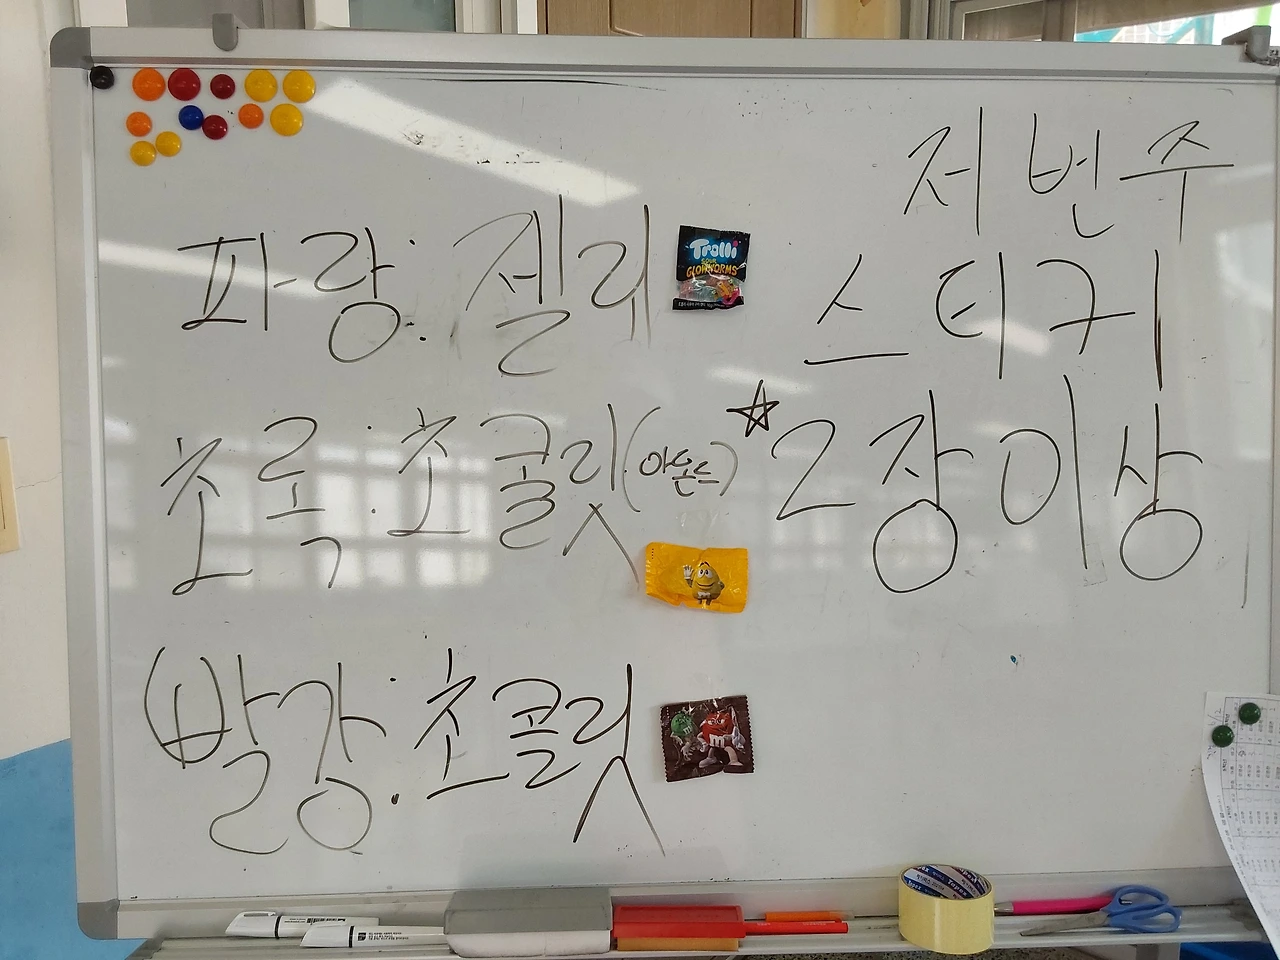 파랑: 젤리
초록: 초콜릿(아몬드)
빨강: 초콜릿
저번주
스티커
☆2장이상
Trolli
SOUR
GLOWWORMS
Tapex